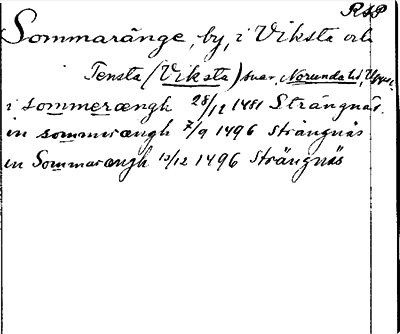 RAP
Sommaränge, by, i Viksta och
Tensta (Viksta) snar, Norunda hd, Uppl.
i sommerængh 28/12 1481 Strängnäs.
in sommerængh 7/9 1496 Strängnäs
in Sommarængh 13/12 1496 Strängnäs